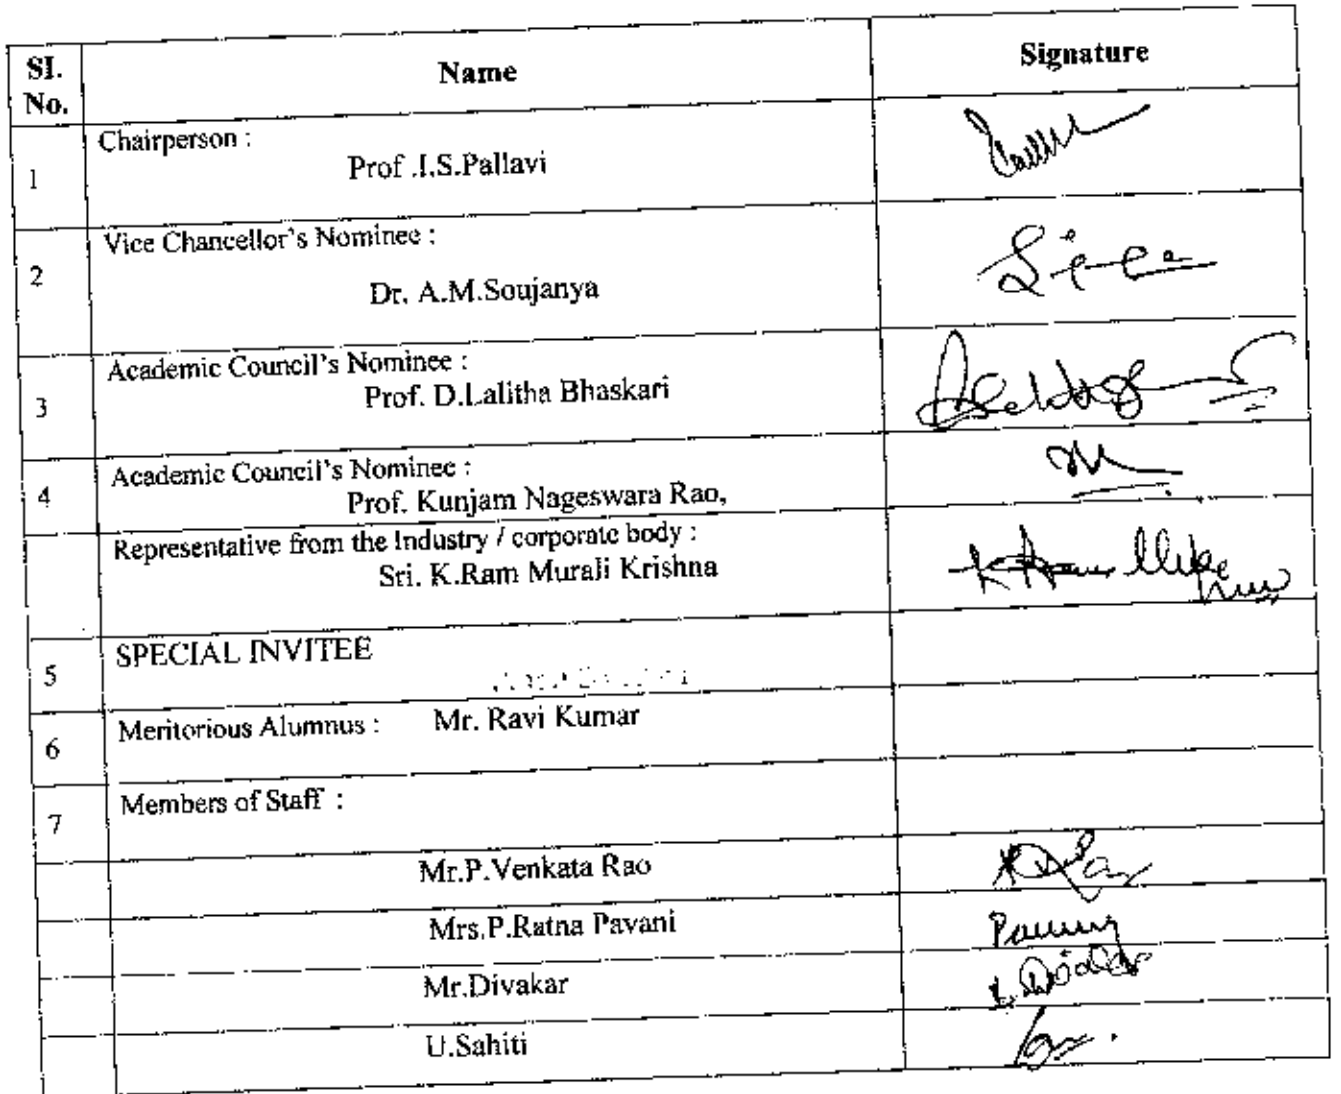 SI. No. Name Signature
Chairperson :
1 Prof .I.S.Pallavi
Vice Chancellor's Nominee :
2 Dr. A.M.Soujanya
Academic Council's Nominee :
3 Prof. D.Lalitha Bhaskari
Academic Council's Nominee :
4 Prof. Kunjam Nageswara Rao,
Representative from the Industry / corporate body :
Sri. K.Ram Murali Krishna
5 SPECIAL INVITEE
6 Meritorious Alumnus : Mr. Ravi Kumar
7 Members of Staff :
Mr.P.Venkata Rao
Mrs.P.Ratna Pavani
Mr.Divakar
U.Sahiti